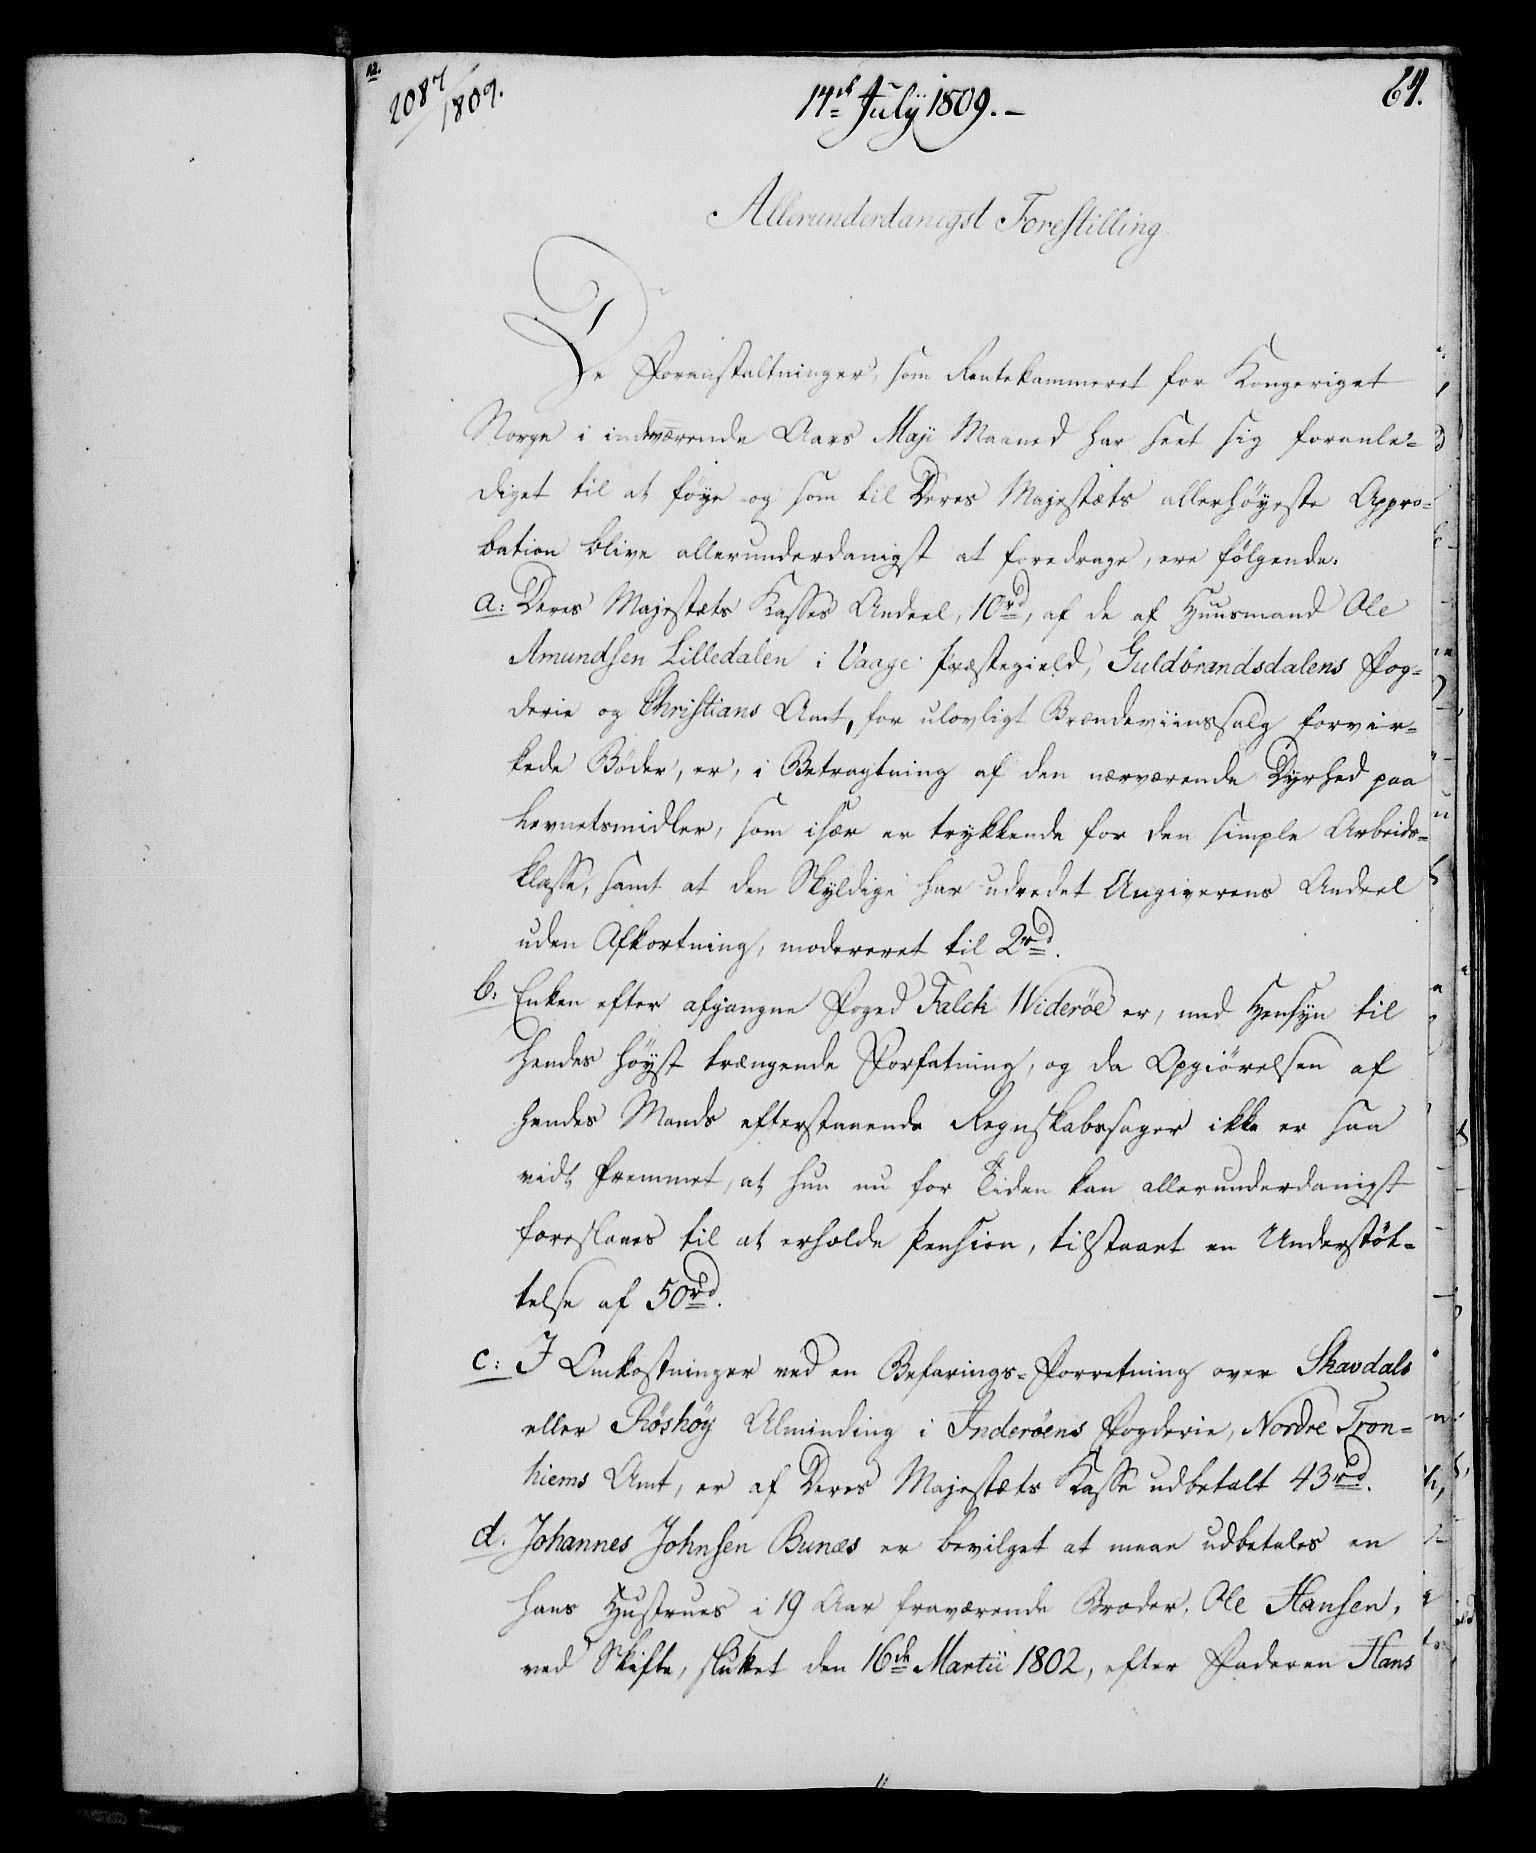 12.
2087/1809.
17de Julÿ 1809. –
64.
Allerunderdanigst Forestilling
De Foranstaltninger, som Rentekammeret for Kongeriget
Norge i indeværende Aars Maji Maaned har seet sig foranle-
diget til at føye og som til Deres Majestæts allerhøyeste Appro-
bation blive allerunderdanigst at foredrage, ere følgende:
a: Deres Majestæts Kasses Andeel, 10rd, af de af Huusmand Ole
Amundsen Lilledalen i Vaage Præstegield, Guldbrandsdalens Fog-
derie og Christians Amt, for ulovligt Brændeviinssalg forvir-
kede Bøder, er, i Betragtning af den nærværende Dyrhed paa
Levnetsmidler, som især er trykkende for den simple Arbeids-
klasse, samt at den Skyldige har udredet Angiverens Andeel
uden Afkortning, modereret til 2rd.
b: Enken efter afgangne Foged Falck Widerøe er, med Hensyn til
hendes høyst trængende Forfatning, og da Opgiørelsen af
hendes Mands efterstaaende Regnskabssager ikke er saa
vidt fremmet, at hun nu for Tiden kan allerunderdanigst
foreslaaes til at erholde Pension, tilstaaet en Understøt-
telse af 50rd.
c: I Omkostninger ved en Befarings-Forretning over Skavdals
eller Røshøy Alminding i Inderøens Fogderie, Nordre Tron-
hiems Amt, er af Deres Majestæts Kasse udbetalt 43rd.
d. Johannes Johnsen Bunæs er bevilget at maae udbetales en
hans Hustrues i 19 Aar fraværende Broder, Ole Hansen,
ved Skifte, sluttet den 16de Martii 1802, efter Faderen Hans